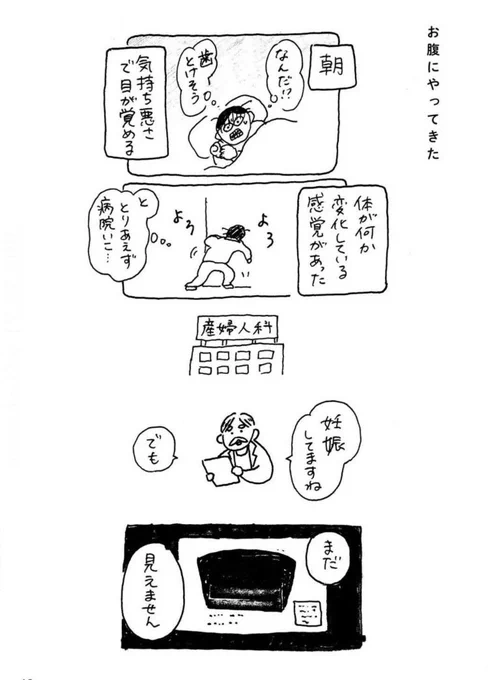 お腹にやってきた
朝
なんだ!?
歯ー
とけそう
気持ち悪さ
で目が覚める
体が何か
変化している
感覚があった
よろ
よろ
と
とりあえず
病院いこ…
産婦人科
妊娠
してますね
でも
まだ
見えません